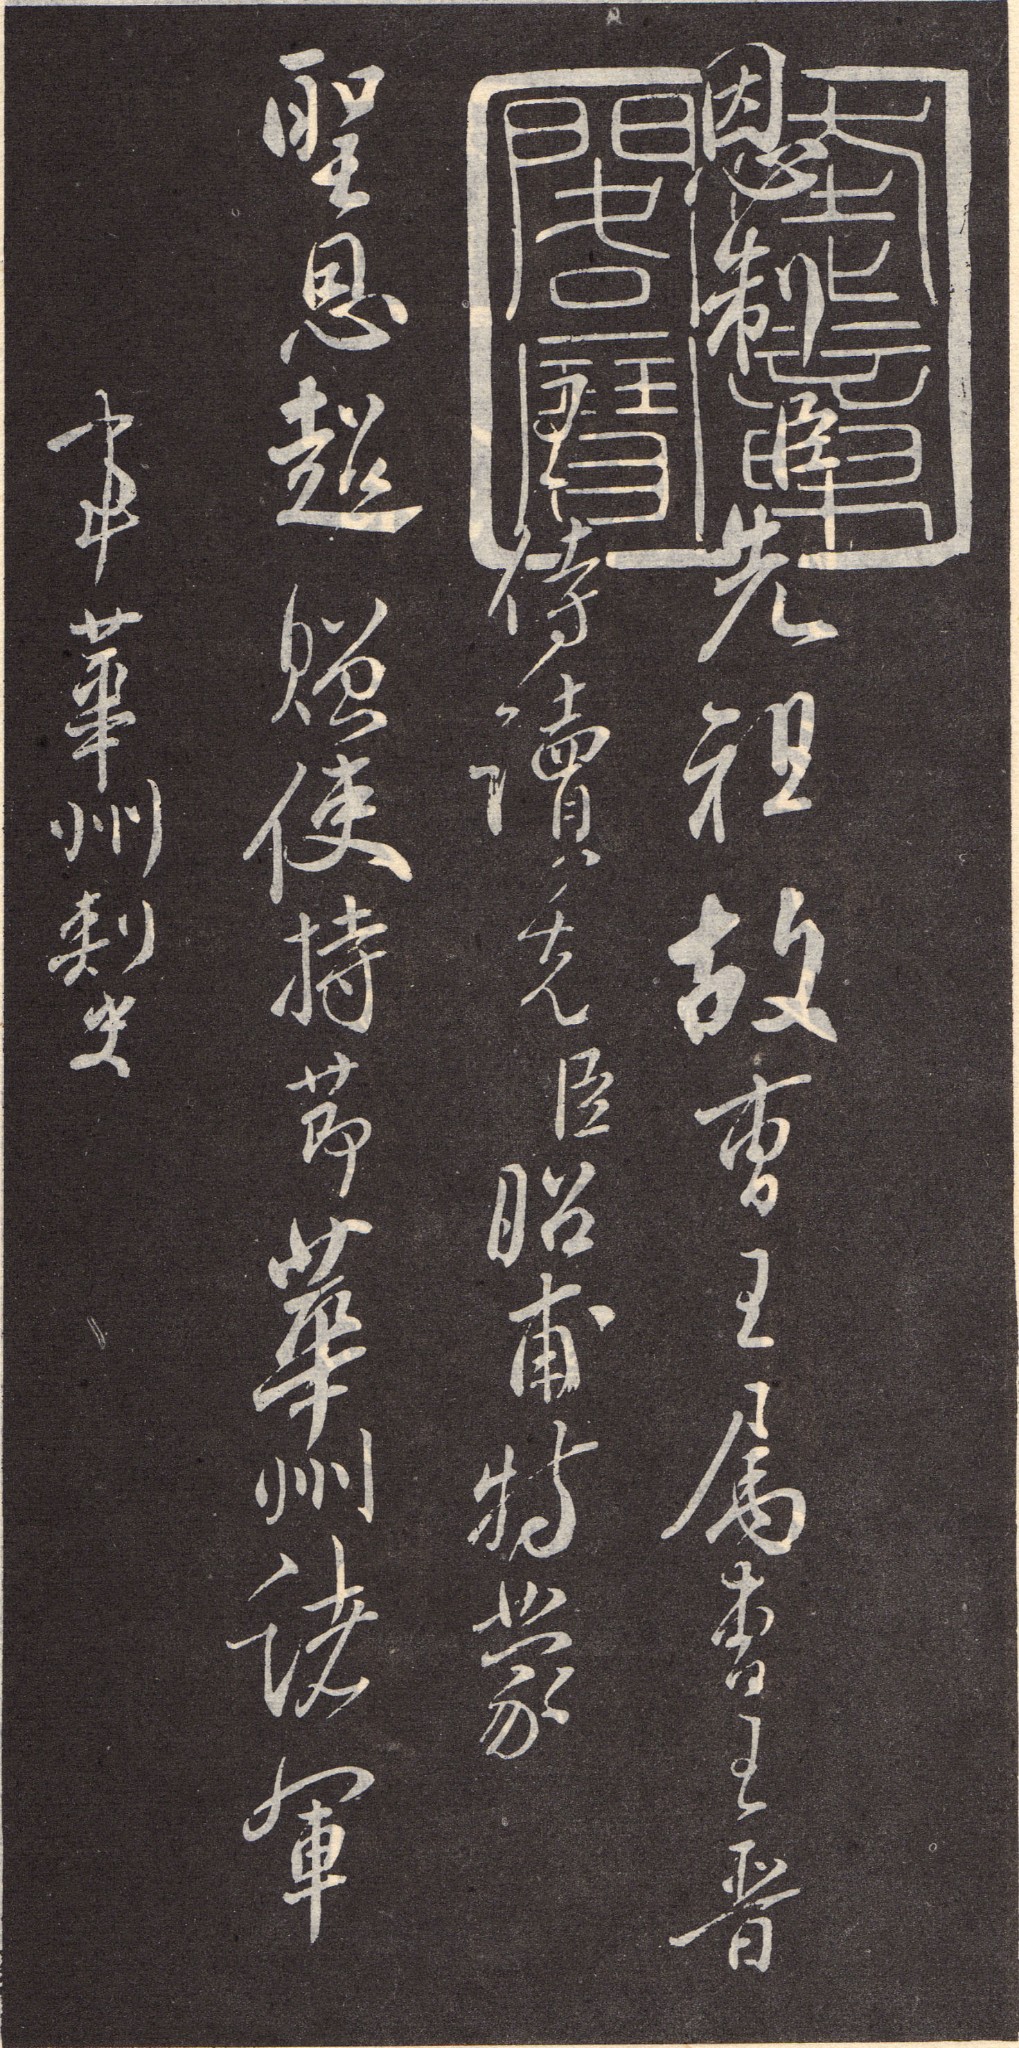 恩制臣先祖故曹王属曹王晉
王侍讀臣昭甫特蒙
聖恩超贈使持節華州諸軍
事華州刾史